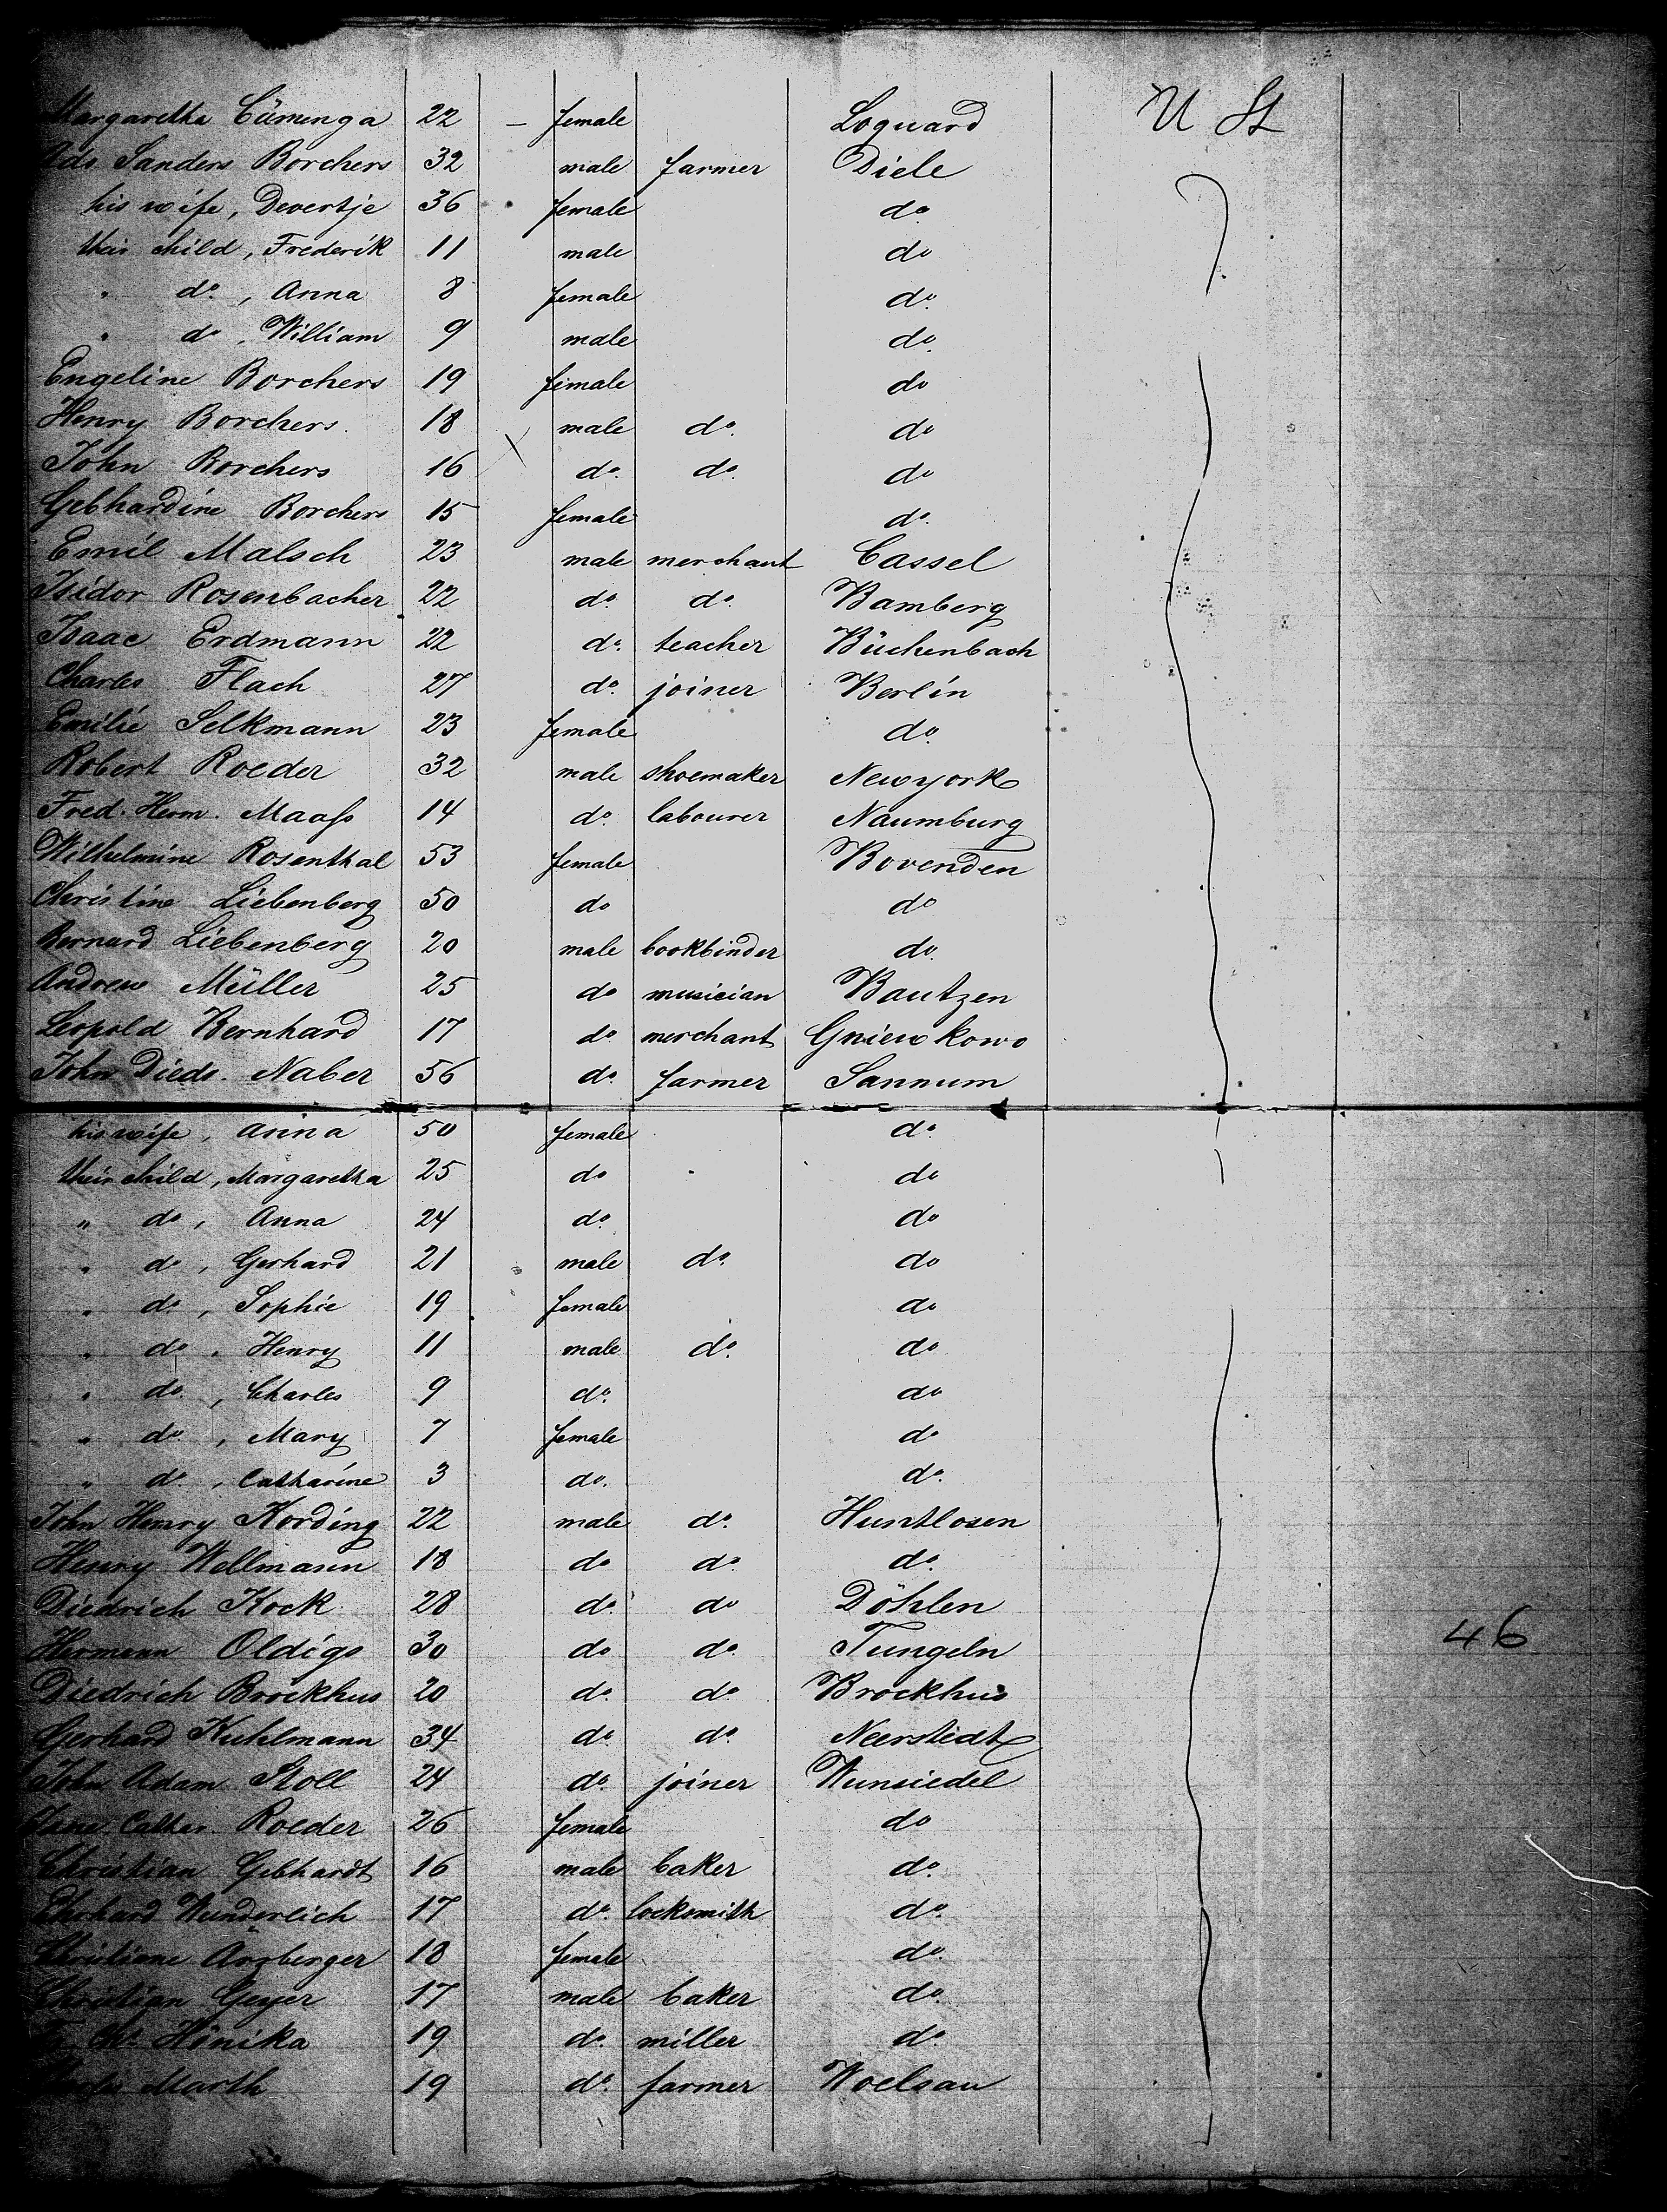 Margaretha Cümenga 22 – female Loquard U St
Sanders Borchers 32 male farmer Diele
his wife, Devertje 36 female do.
their child, Frederik 11 male do
" do., Anna 8 female do.
" do, William 9 male do.
Engeline Borchers 19 female do
Henry Borchers. 18 male do. do
John Borchers 16 do. do. do
Gebhardine Borchers 15 female do.
Emil Malsch 23 male merchant Cassel
Isidor Rosenbacher 22 do. do. Bamberg
Isaac Erdmann 22 do. teacher Büchenbach
Charles Flach 27 do. joiner Berlin
Emilie Selkmann 23 female do.
Robert Roeder 32 male shoemaker Newyork
Fred. Herm. Maaſs 14 do. labourer Naumburg
Wilhelmine Rosenthal 53 female Bovenden
Christine Liebenberg 50 do do
Bernard Liebenberg 20 male bookbinder do.
Andrew Müller 25 do musician Bautzen
Leopold Bernhard 17 do. merchant Gniewkowo
John Diedr. Naber 56 do. farmer Sannum
his wife, Anna 50 female do.
their child, Margaretha 25 do do
" do, Anna 24 do. do
" do, Gerhard 21 male do. do
" do, Sophie 19 female do
" do, Henry 11 male do. do
" do, Charles 9 do. do
" do, Mary 7 female do
" do., Catharine 3 do. do.
John Henry Kording 22 male do. Huntlosen
Henry Wellmann 18 do do. do.
Diedrich Kock 28 do. do Döhlen
Hermann Oldigs 30 do do. Tungeln 46
Diedrich Brockhus 20 do. do. Brockhus
Gerhard Kuhlmann 34 do. do. Neerstedt
John Adam Stoll 24 do. joiner Wunsiedel
Cather. Roeder 26 female do
Christian Gebhardt 16 male baker do.
Ehrhard Wunderlich 17 do. locksmith do.
Christiane Arzberger 18 female do.
Christian Geyer 17 male baker do.
Hinika 19 do. miller do.
Marth 19 do. farmer Woelsau